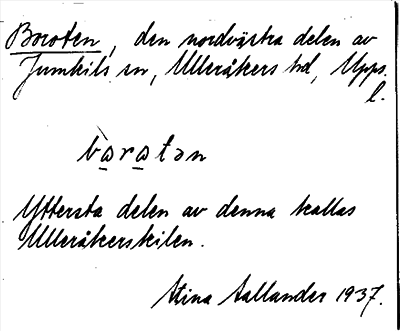 Boroten, den nordvästra delen av
Jumkils sn, Ulleråkers hd, Upps.
l.
bòrotən
Yttersta delen av denna kallas
Ulleråkerskilen.
Stina Aallander 1937.